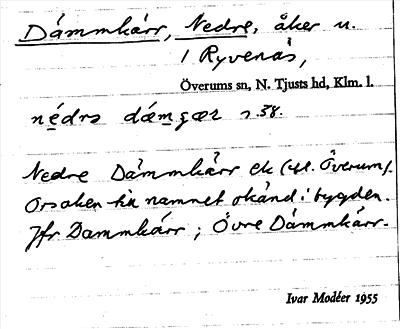 Dammkärr, Nedre, åker u.
/ Ryvenäs,
Överums sn, N. Tjusts hd, Klm. l.
nédrə s. 38.
Nedre Dammkärr ek (Överum).
Orsaken till namnet okänd i bygden.
Jfr Dammkärr ; Övre Dammkärr.
Ivar Modéer 1955